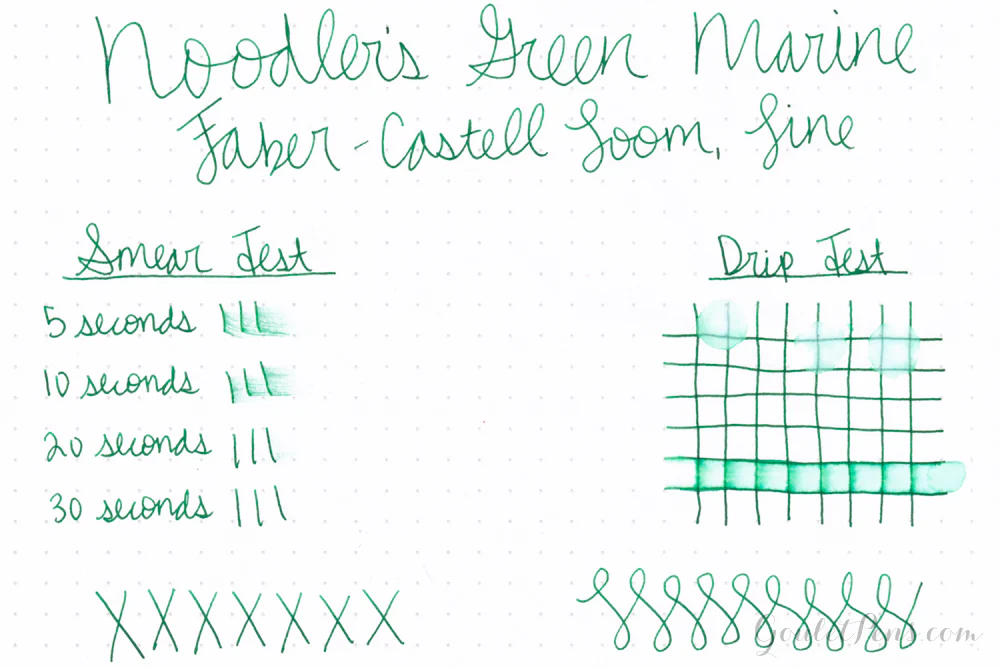 Noodler's Green Marine
Faber-Castell Loom, fine
Smear Test
5 seconds
10 seconds
20 seconds
30 seconds
Drip Test
XXXXXXX
GouletPens.com